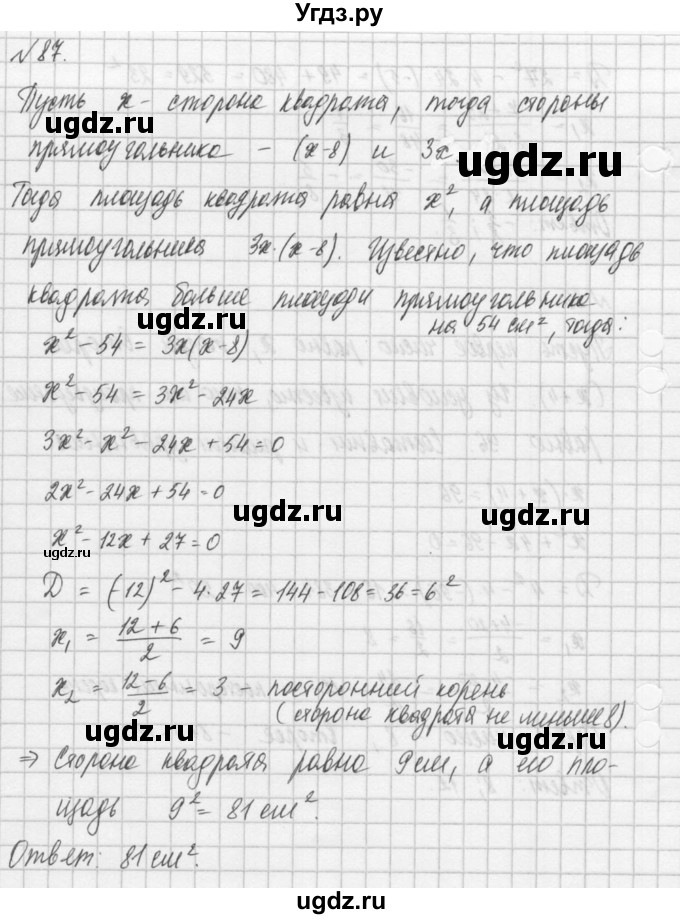 Угдз.ру
№87.
Пусть x - сторона квадрата, тогда стороны
ugdz.ru
прямоугольника - (x-8) и 3x.
ugdz.ru
Тогда площадь квадрата равна x², а площадь
прямоугольника 3x·(x-8). Известно, что площадь
ugdz.ru
квадрата больше площади прямоугольника
на 54 см², тогда:
ugdz.ru
x²-54 = 3x(x-8)
x²-54 = 3x²-24x
ugdz.ru
3x²-x²-24x+54=0
2x²-24x+54=0
ugdz.ru
x²-12x+27=0
ugdz.ru
D = (-12)²-4·27 = 144-108=36=6²
x₁ = (12+6)/2 = 9
ugdz.ru
x₂ = (12-6)/2 = 3 - посторонний корень
(сторона квадрата не меньше 8).
ugdz.ru
⇒ Сторона квадрата равна 9см, а его пло-
щадь 9²=81см².
ugdz.ru
Ответ: 81см².
ugdz.ru